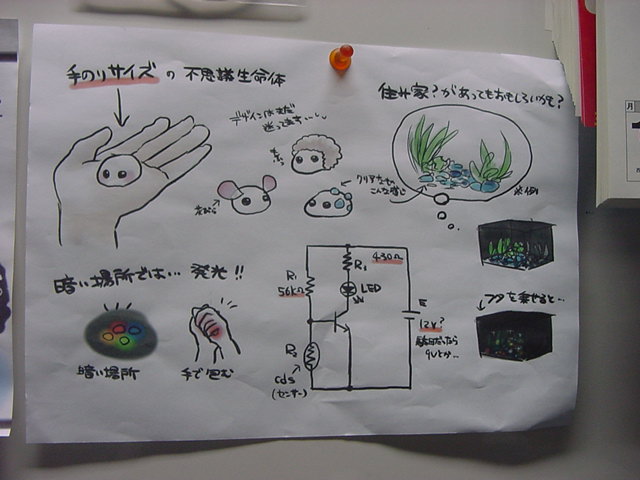 手のりサイズ の 不思議生命体
デザインはまだ
迷ってます…
住み家?があってもおもしろいかも?
クリアなもの
こんな感じ
暗い場所では… 発光!!
暗い場所
手で包む
R₁
56kΩ
R₂
cds
(センサー)
430Ω
LED
E
12V?
9Vとか…
フタを乗せると…
月